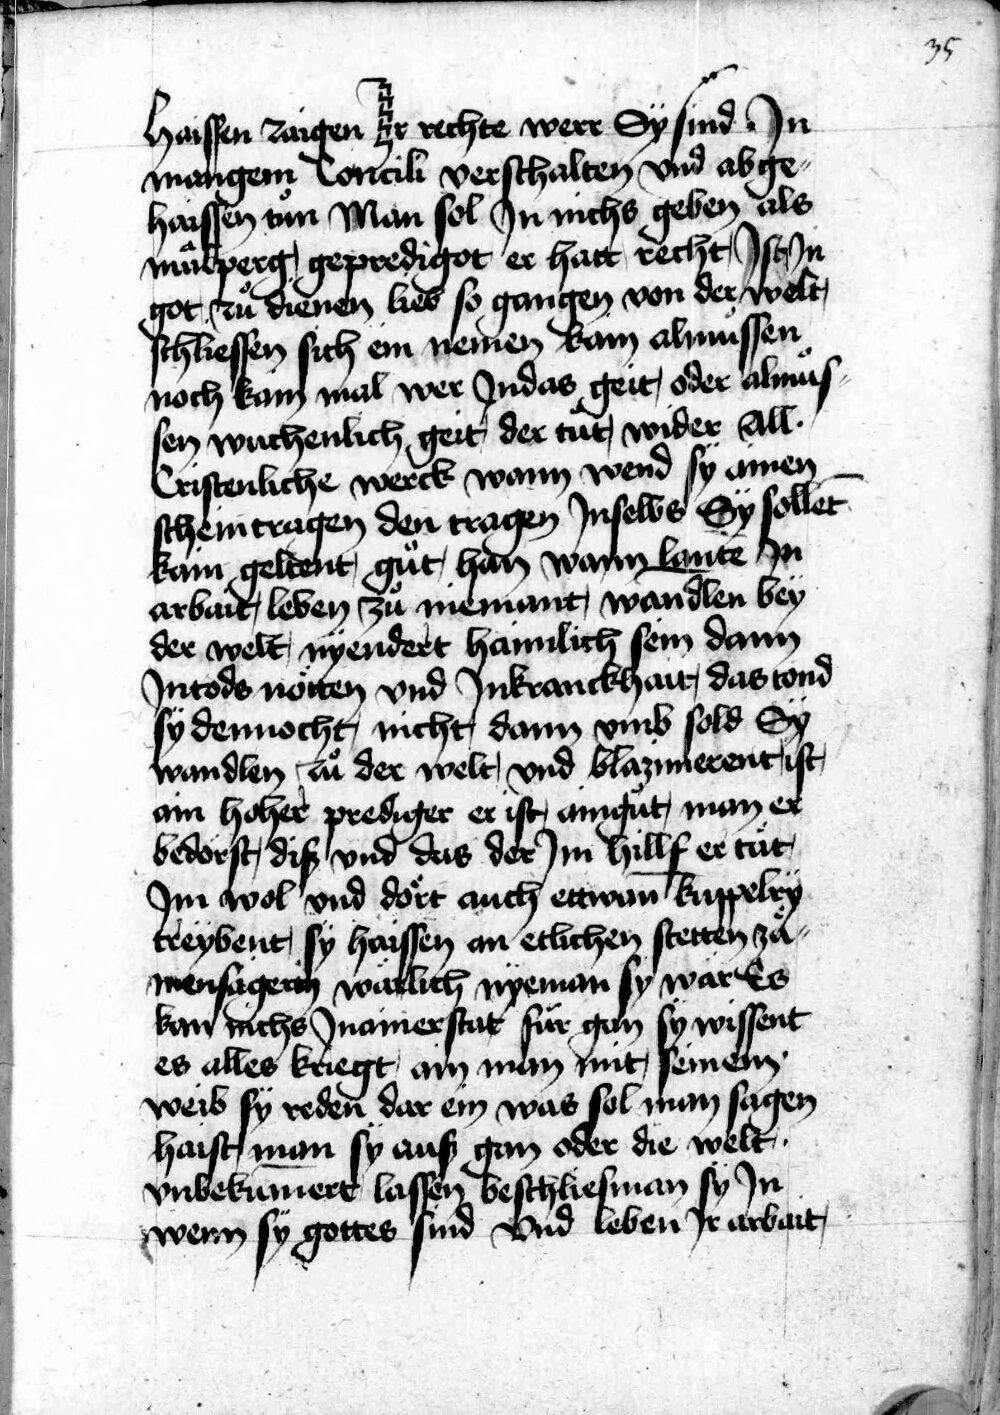 35
Haissen zaigen Ir rechte werr Sy sind · In
mangem Concili verschalten vnd abge-
haissen tůn Man sol In nichs geben als
mälperg gepredigot er hatt recht Ist In
got zů dienen lieb so gangen von der welt
schliessen sich ein nemen kain almůssen
noch kain mal wer Indas geit oder almůs-
sen wuchenlich geit der tůt wider All·
Cristenliche werck wann wend sy ainen
schein tragen den tragen Inselbs Sy sollet
kain geltent gůt han wann laute In
arbait leben zů niemant wandlen bey
der welt nyendert haimlich sein dann
In tods nötten vnd Inkranckhait das tond
sy dennocht nicht dann vmb sold Sy
wandlen zů der welt vnd blazimerent ist
ain hoher prediger er ist ain gůt man er
bedorft diß vnd das der Im hillf er tät
Im wol vnd dört auch ettwan kuppelry
treybent sy haissen an etlichen stetten zä-
mensagerin wärlich nyeman sy wär Es
kan nichs Inainerstat für gan sy wissent
es alles kriegt ain man mit seinem
weib sy reden dar ein was sol man sagen
haist man sy auß gan oder die welt ·
vnbekumert lassen beschliesman sy In
wenn sy gottes sind Vnd leben Ir arbait